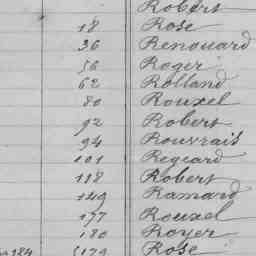 Robert
18 Rose
36 Renouard
56 Roger
62 Rolland
80 Rouxel
92 Robert
94 Rouvrais
101 Regeard
118 Robert
149 Ramard
177 Rouxel
180 Royer
184 179 Rose